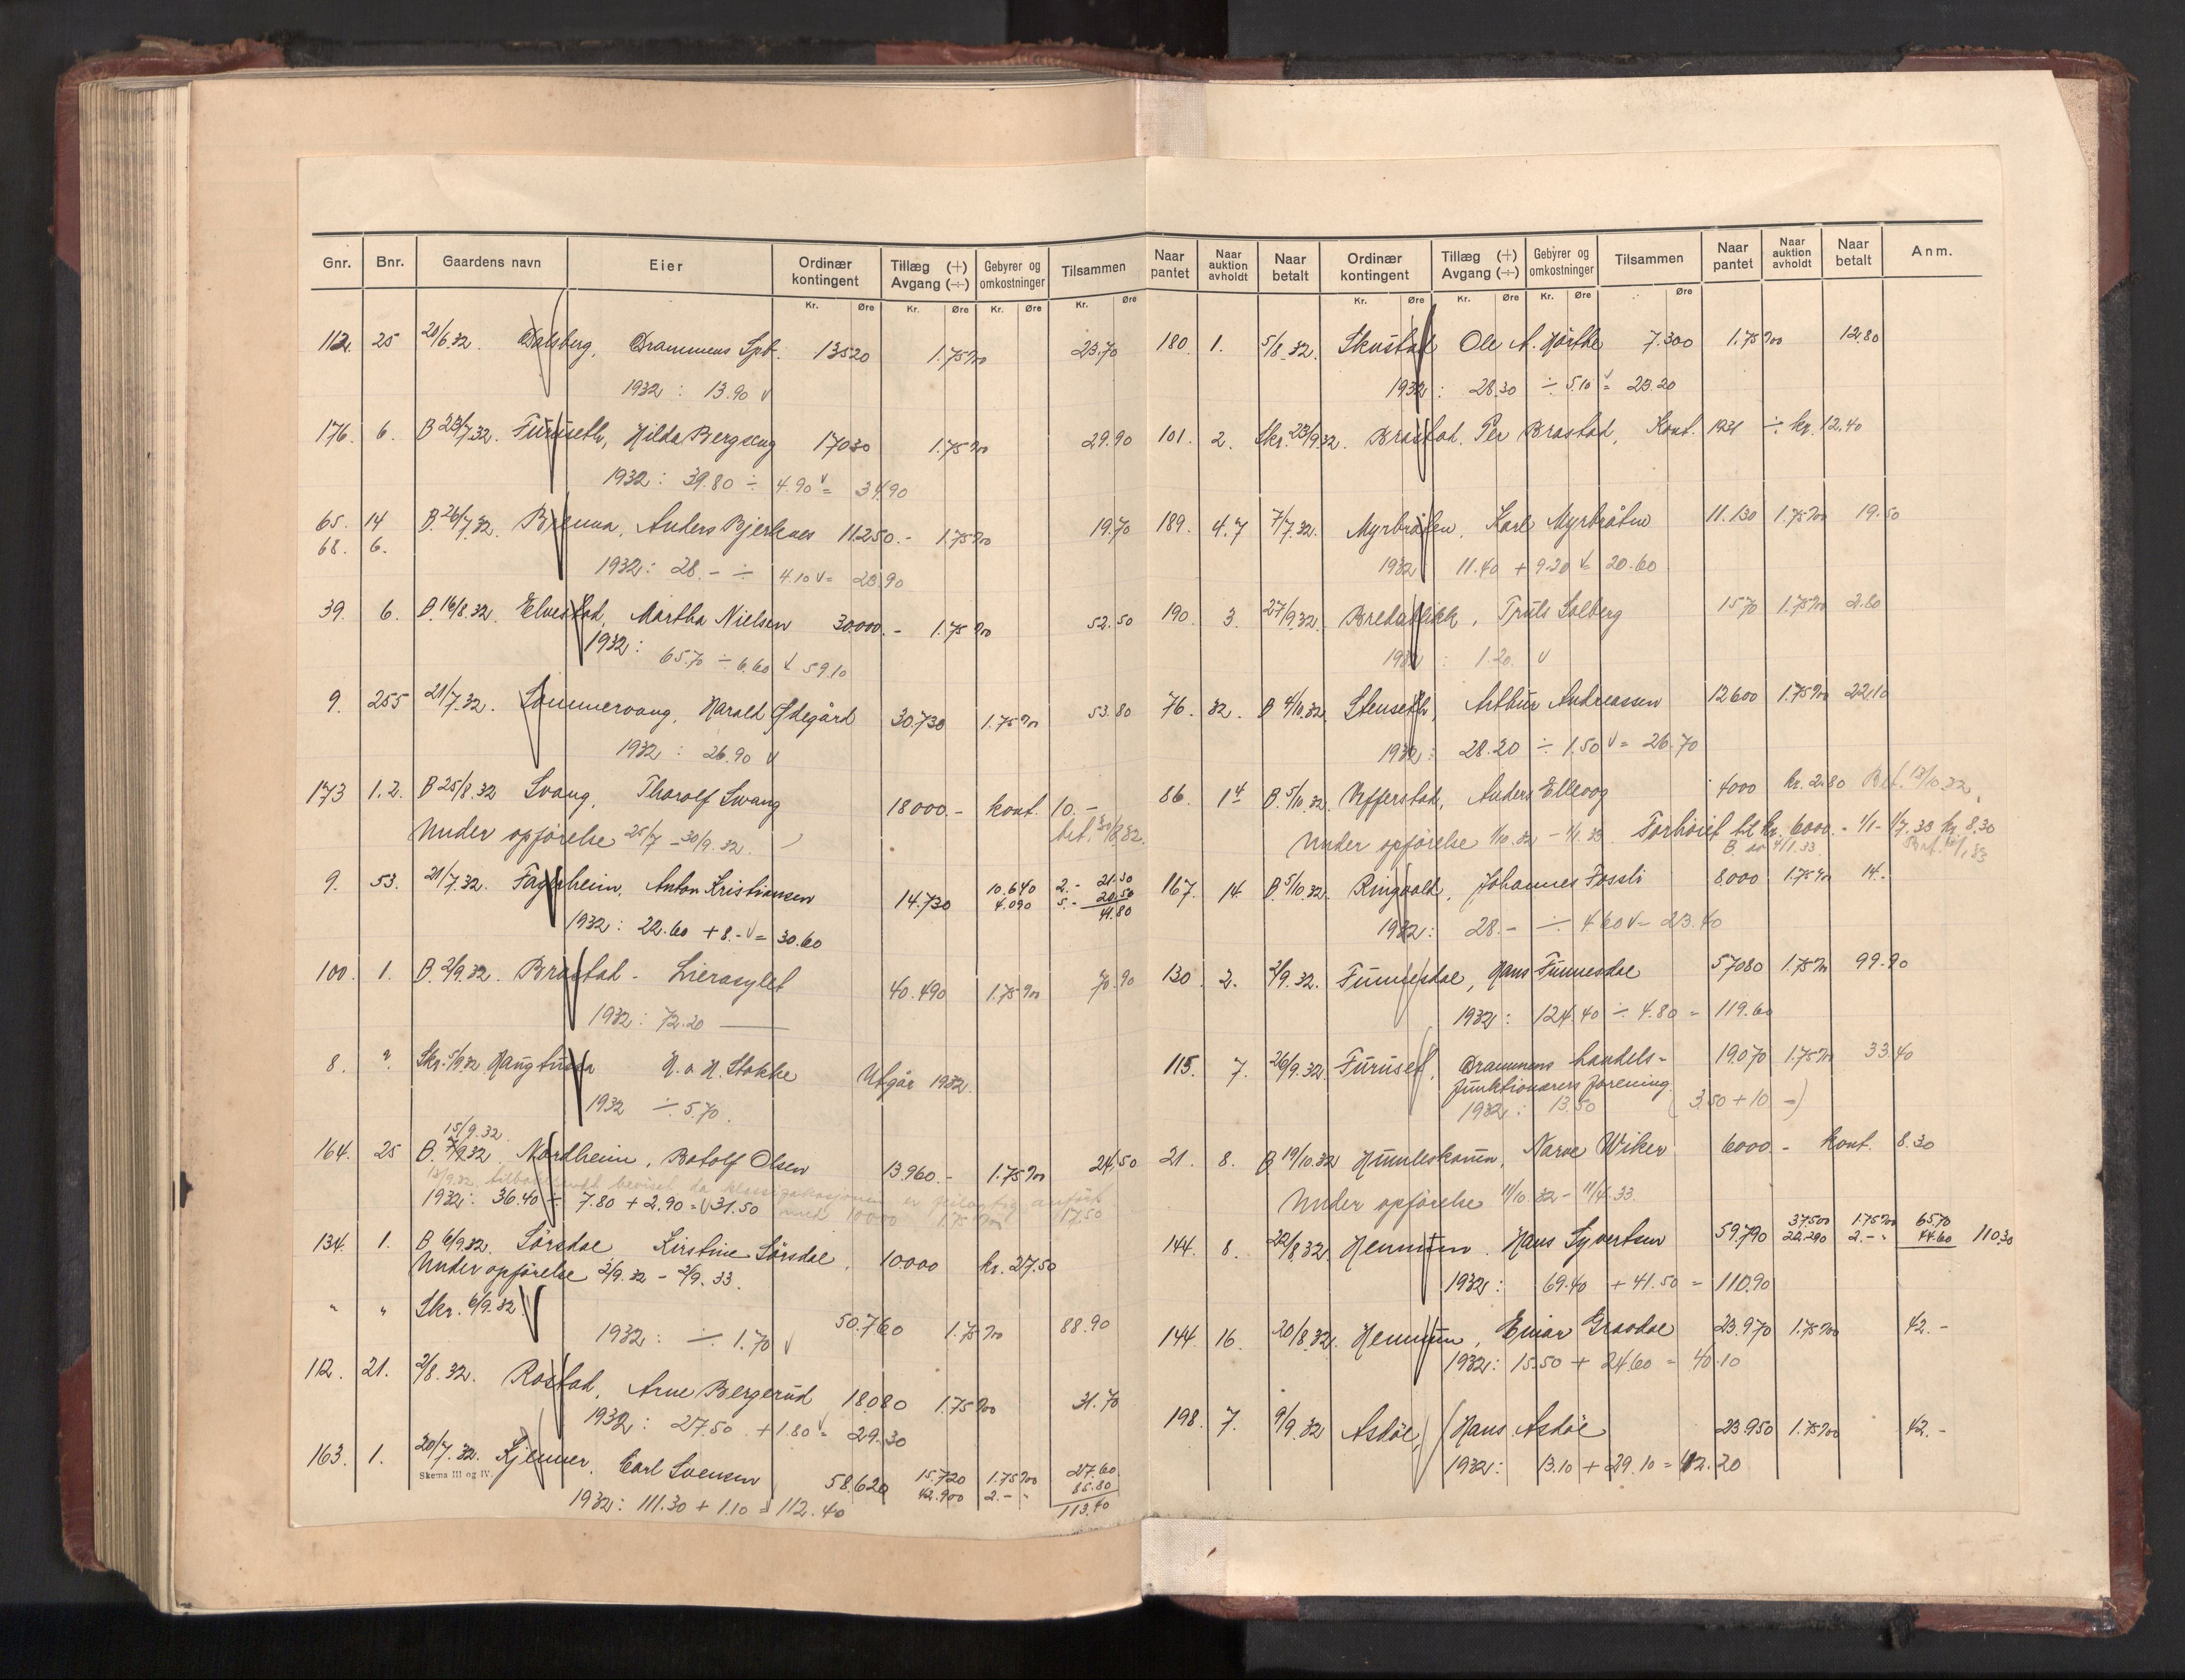 Gnr. Bnr. Gaardens navn Eier Ordinær kontingent Tillæg (+) Avgang (÷) Gebyrer og omkostninger Tilsammen
Kr. Øre Kr. Øre Kr. Øre Kr. Øre
112. 25 20/6.32. Dalsberg, Drammens Spb. 13520 1.75 ‰ 23.70
1932 : 13.90 v
176. 6. B 23/7.32. Furuseth, Hilda Bergseng 17030 1.75 ‰ 29.90
1932 : 39.80 ÷ 4.90 v = 34.90
65. 14 B. 26/7.32. Brenna, Anders Bjerknes 11250.- 1.75 ‰ 19.70
68. 6.
1932 : 28.- ÷ 4.10 v = 23.90
39. 6. B. 16/8.32. Elvestad, Martha Nielsen 30.000.- 1.75 ‰ 52.50
1932 : 65.70 ÷ 6.60 v 59.10
9. 255 21/7.32. Sommervang, Harald Ødegård 30.730 1.75 ‰ 53.80
1932 : 26.90 v
173 1.2. B 25/8.32 Svang, Thorolf Svang 18000.- kont. 10.-
Under opførelse 25/7 - 30/9.32.
9. 53. 21/7.32. Fagerheim, Anton Kristiansen 14.730 10.640 2.- 21.30
4.090 5.- 20.50
41.80
1932 : 22.60 + 8.- v = 30.60
100. 1. B. 2/9.32. Brastad - Lierasylet 40.490 1.75 ‰ 70.90
1932 : 72.20
8. ? Skr. 5/9.32 Haugtussa H. o H. Stokke Utgår 1932.
1932 ÷ 5.70.
15/9.32.
164. 25 B. 7/9.32. Nordheim, Botolf Olsen 13.960.- 1.75 ‰ 24.50
1932 : 36.40 ÷ 7.80 + 2.90 = v 31.50 med 10000 1.75 ‰ 17.50
134. 1. B 6/9.32. Sørsdal Kirstine Sørsdal, 10000 kr. 27.50
Under opførelse 2/9.32 - 2/9.33.
" " Skr. 6/9.32. 50.760 1.75 ‰ 88.90
1932 : ÷ 1.70 v
112. 21. 2/8.32. Rostad, Arne Bergerud 18080 1.75 ‰ 31.70
1932 : 27.50 + 1.80 v = 29.30
163. 1. 20/7.32. Kjenner, Carl Svensen 58.620 15.720 1.75 ‰ 27.60
42.900 2.- " 85.80
113.40
Skema III og IV.
1932 : 111.30 + 1.10 = 112.40
Naar pantet Naar auktion avholdt Naar betalt Ordinær kontingent Tillæg (+) Avgang (÷) Gebyrer og omkostninger Tilsammen Naar pantet Naar auktion avholdt Naar betalt Anm.
Kr. Øre Kr. Øre Kr. Øre Øre
180. 1. 5/8.32. Skustad Ole A. Hørthe 7.300 1.75 ‰ 12.80
1932 : 28.30 ÷ 5.10 v = 23.20
101. 2. Skr. 23/9.32. Brastad. Per Brastad, Kont. 1931 ÷ kr. 12.40
189. 4.7 7/7.32. Myrbråten, Karl Myrbråten 11.130 1.75 ‰ 19.50
1932 11.40 + 9.20 v = 20.60
190. 3. 27/9.32. Bredablikk, Truls Solberg 1570 1.75 ‰ 2.80
1932 : 1.20. v
76. 32. B 4/10.32. Stenseth, Arthur Andreassen 12600 1.75 ‰ 22.10
1932 : 28.20 ÷ 1.50 v = 26.70
86. 14 B. 5/10.32. Ufferstad, Anders Ellevog 4000 kr. 2.80 Bet. 13/10.32.
Under opførelse 1/10.32 - 1/1.33. Forhøiet til kr. 6000.- 1/1 - 1/7.33 kr. 8.30
B. av 4/1.33
167. 14. B. 5/10.32. Ringvold, Johannes Fossli 8.000 1.75 ‰ 14.-
1932 : 28.- ÷ 4.60 v = 23.40
130. 2. 2/9.32. Funnesdal, Hans Funnesdal 57080 1.75 ‰ 99.90
1932 : 124.40 ÷ 4.80 = 119.60
115. 7. 26/9.32. Furuset, Drammens handels- 19.070 1.75 ‰ 33.40
funktionærers forening.
1932 : 13.50 (3.50 + 10 -)
21. 8. B 19/10.32 Humleskaun, Narve Wiker 6000.- kont. 8.30
Under opførelse 11/10.32 - 11/4.33.
144. 8. 22/8.32. Hennum. Hans Syvertsen 59.790 37.500 1.75 ‰ 65.70
22.290 2.- " 44.60 110.30
1932 : 69.40 + 41.50 = 110.90
144. 16. 20/8.32. Hennum, Einar Graadal 23.970 1.75 ‰ 42.-
1932 : 15.50 + 24.60 = 40.10
198. 7. 9/9.32 Asdøl, Hans Asdøl 23.950 1.75 ‰ 42.-
1932 : 13.10 + 29.10 = 42.20